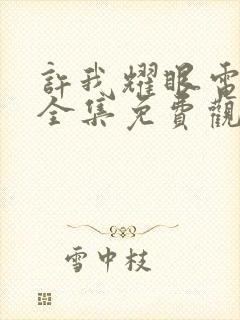 許我耀眼電
全集免費觀
雪中枝